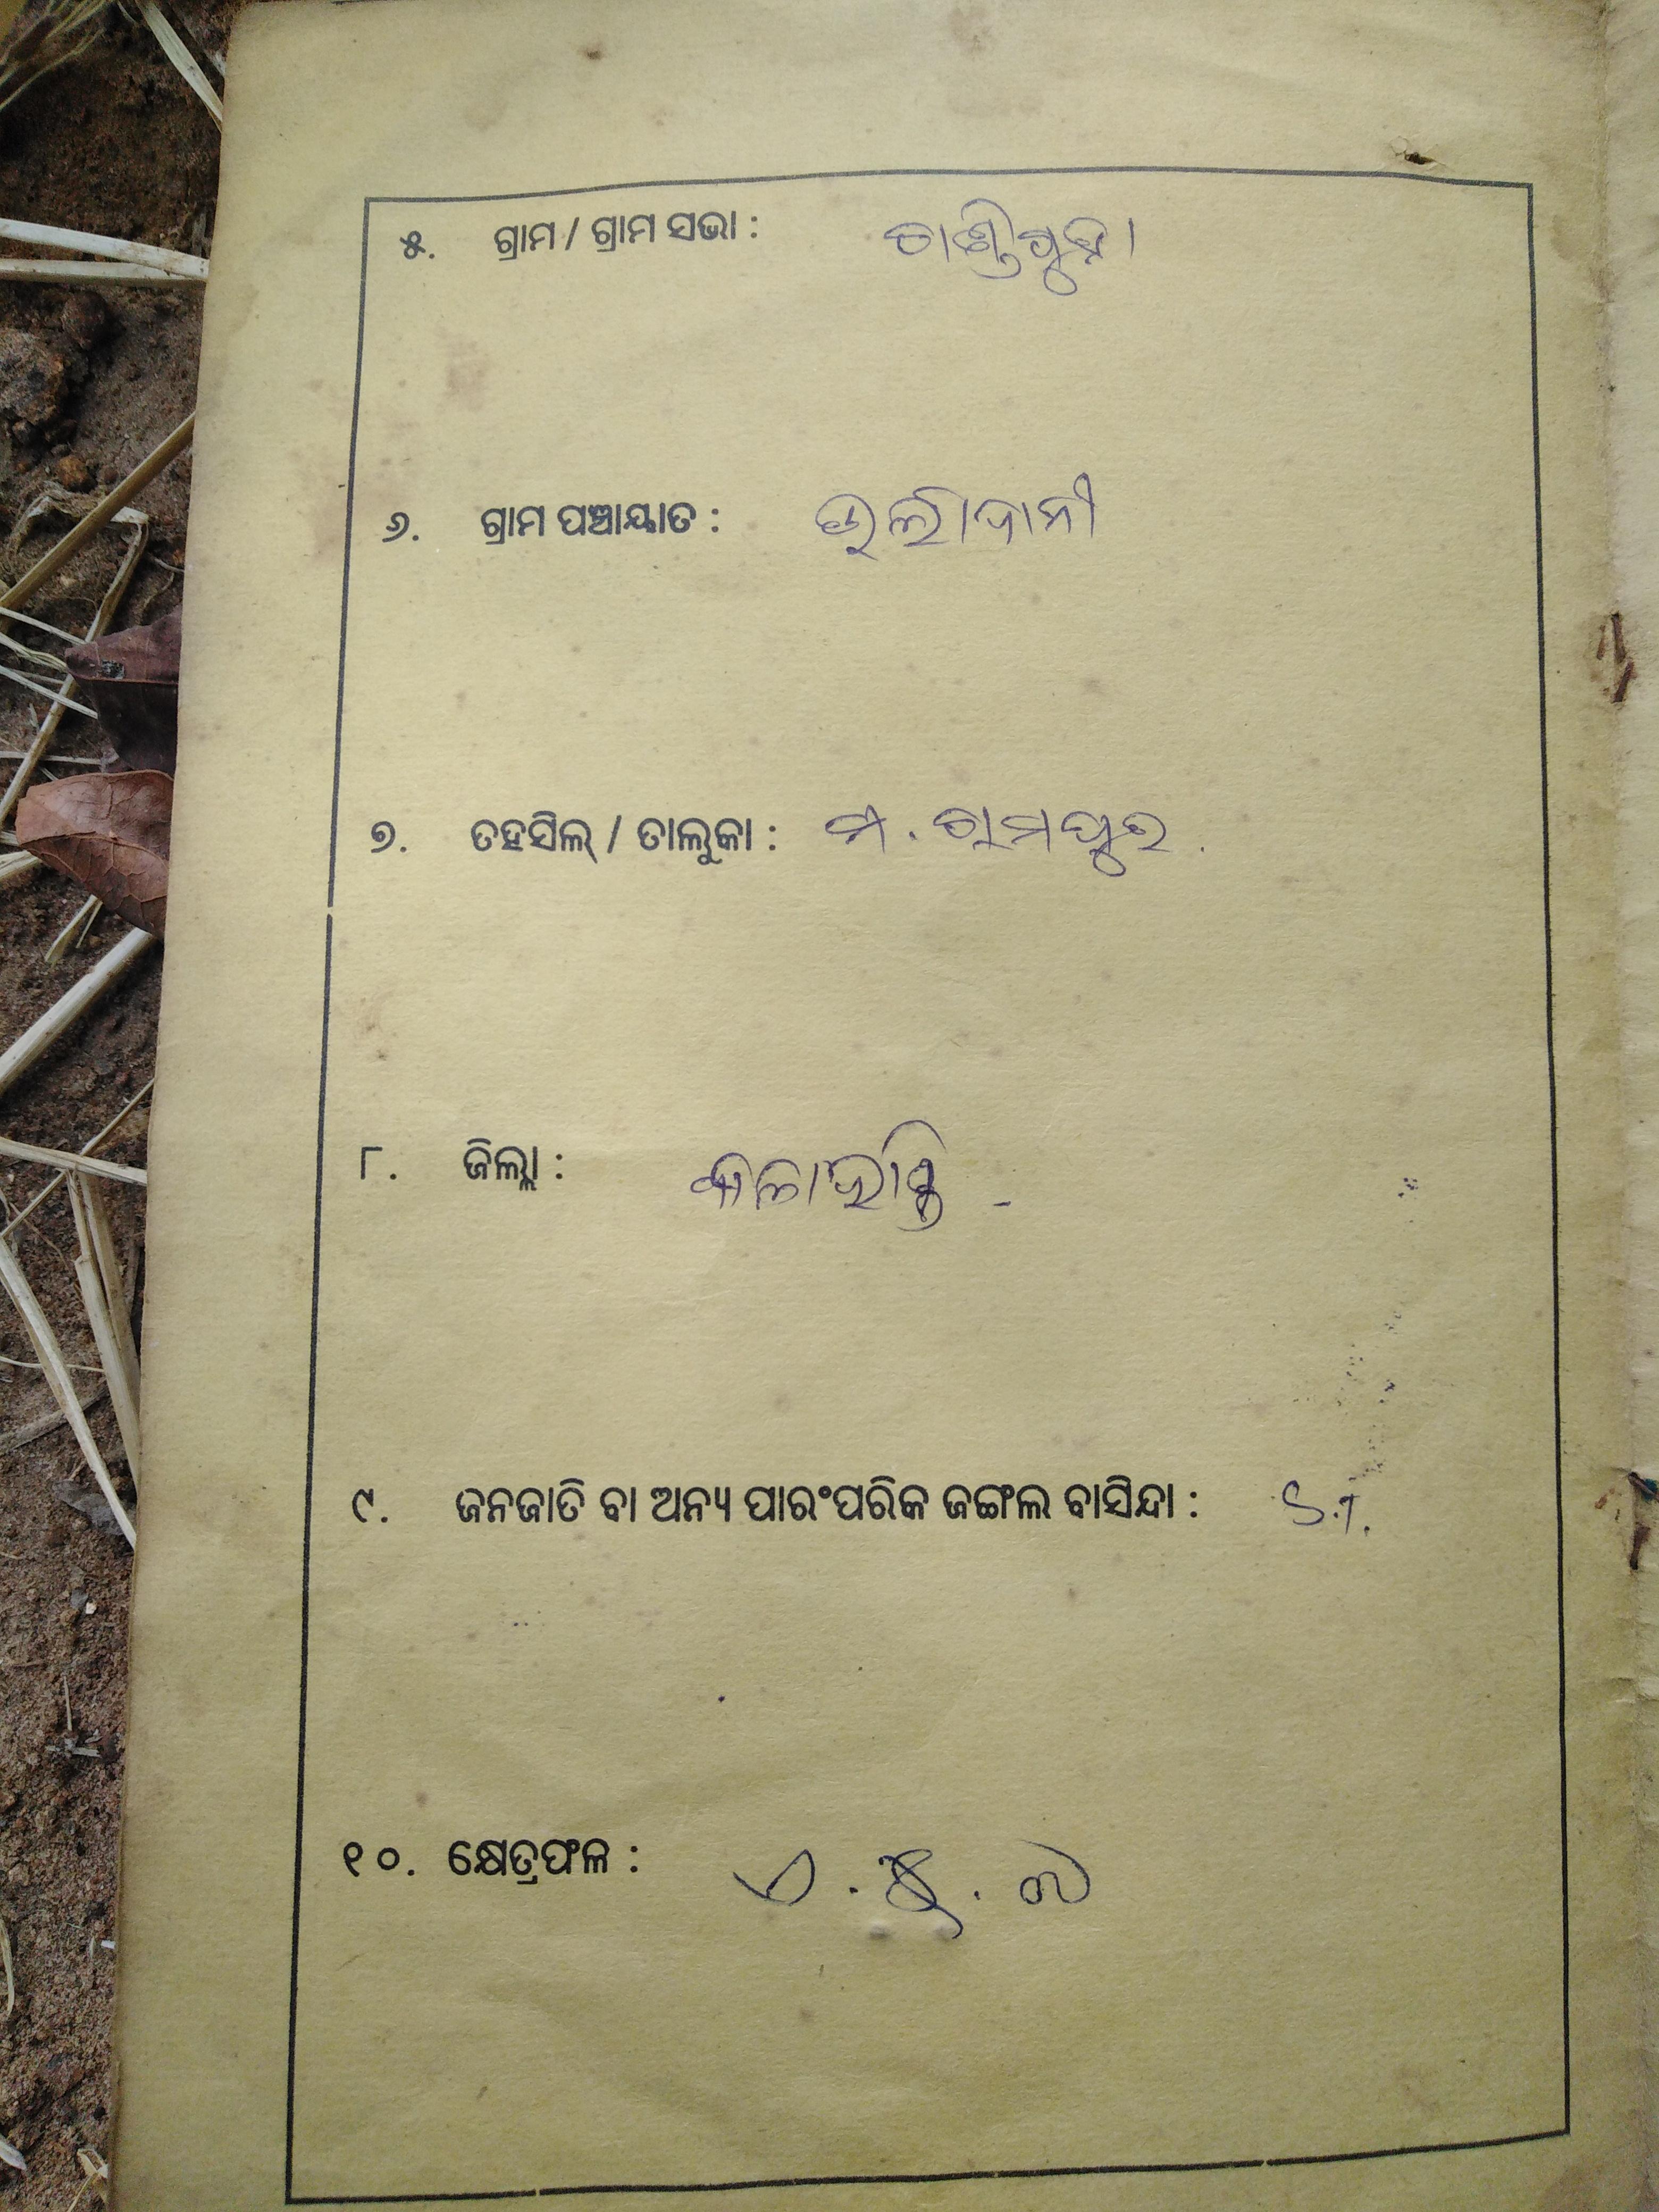 ୫. ଗ୍ରାମ / ଗ୍ରାମ ସଭା :
୬. ଗ୍ରାମ ପଞ୍ଚାୟାତ :
୭. ତହସିଲ୍ / ତାଲୁକା : ମ. ରାମପୁର .
୮. ଜିଲ୍ଲା : କଳାହାଣ୍ଡି -
୯. ଜନଜାତି ବା ଅନ୍ୟ ପାରଂପରିକ ଜଙ୍ଗଲ ବାସିନ୍ଦା : S.T.
୧୦. କ୍ଷେତ୍ରଫଳ :